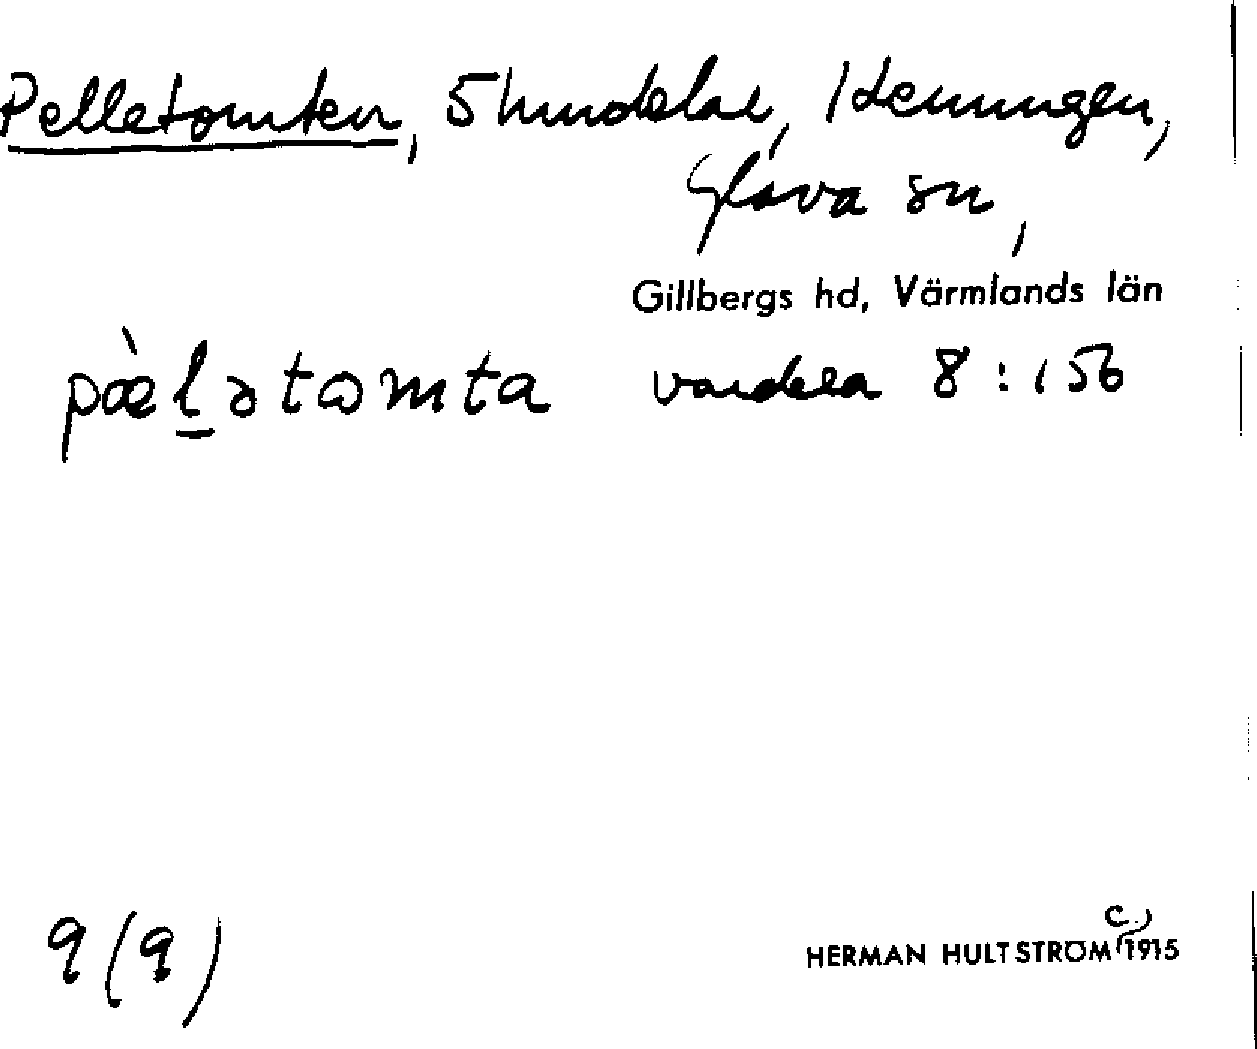 Pelletomten, Shmdelar, Henningen,
Glava sn,
Gillbergs hd, Värmlands län
pæ̀l̠ətɷmta vardera 8:156
9(9)
HERMAN HULTSTRÖM (c.) 1915